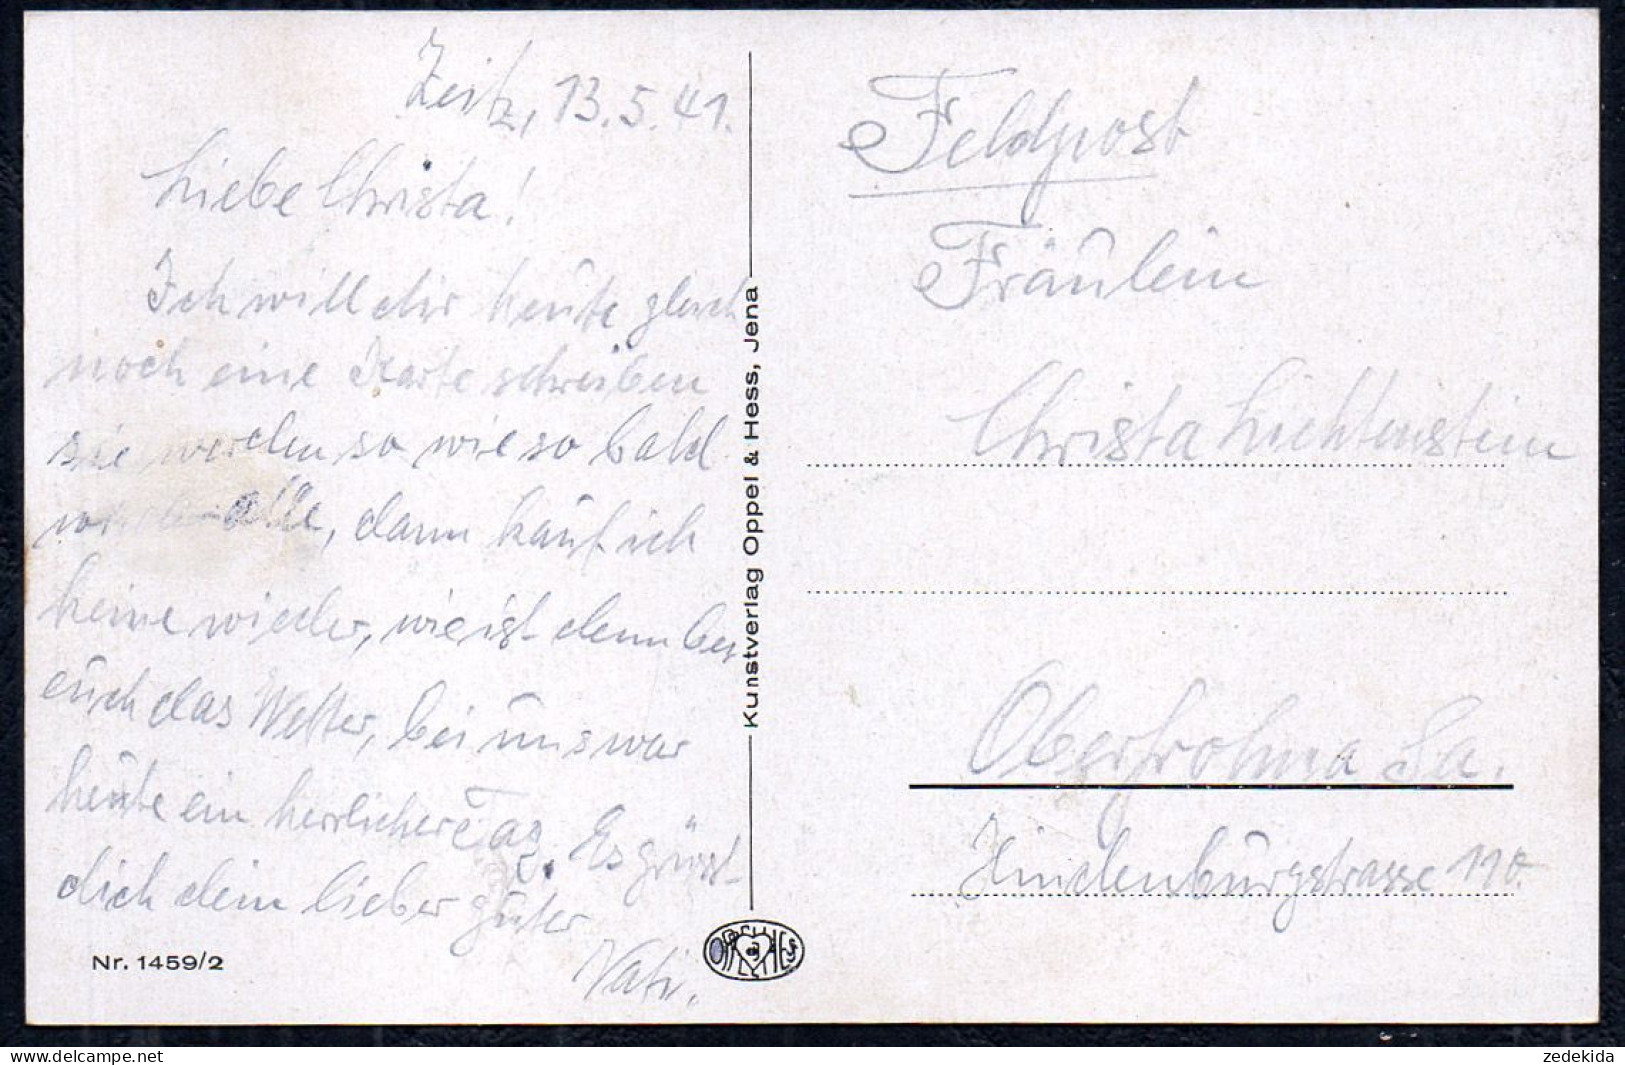 Zeitz, 13.5.41.
Liebe Christa!
Ich will dir heute gleich
noch eine Karte schreiben
sie werden so wie so bald
alle, dann kauf ich
keine wieder, wie ist denn bei
euch das Wetter, bei uns war
heute ein herrlicher Tag. Es grüsst
dich dein lieber guter
Vati.
Nr. 1459/2
Kunstverlag Oppel & Hess, Jena
Feldpost
Fräulein
Christa Lichtenstein
Oberfrohna Sa.
Hindenburgstrasse 110.
delcampe.net
zedekida